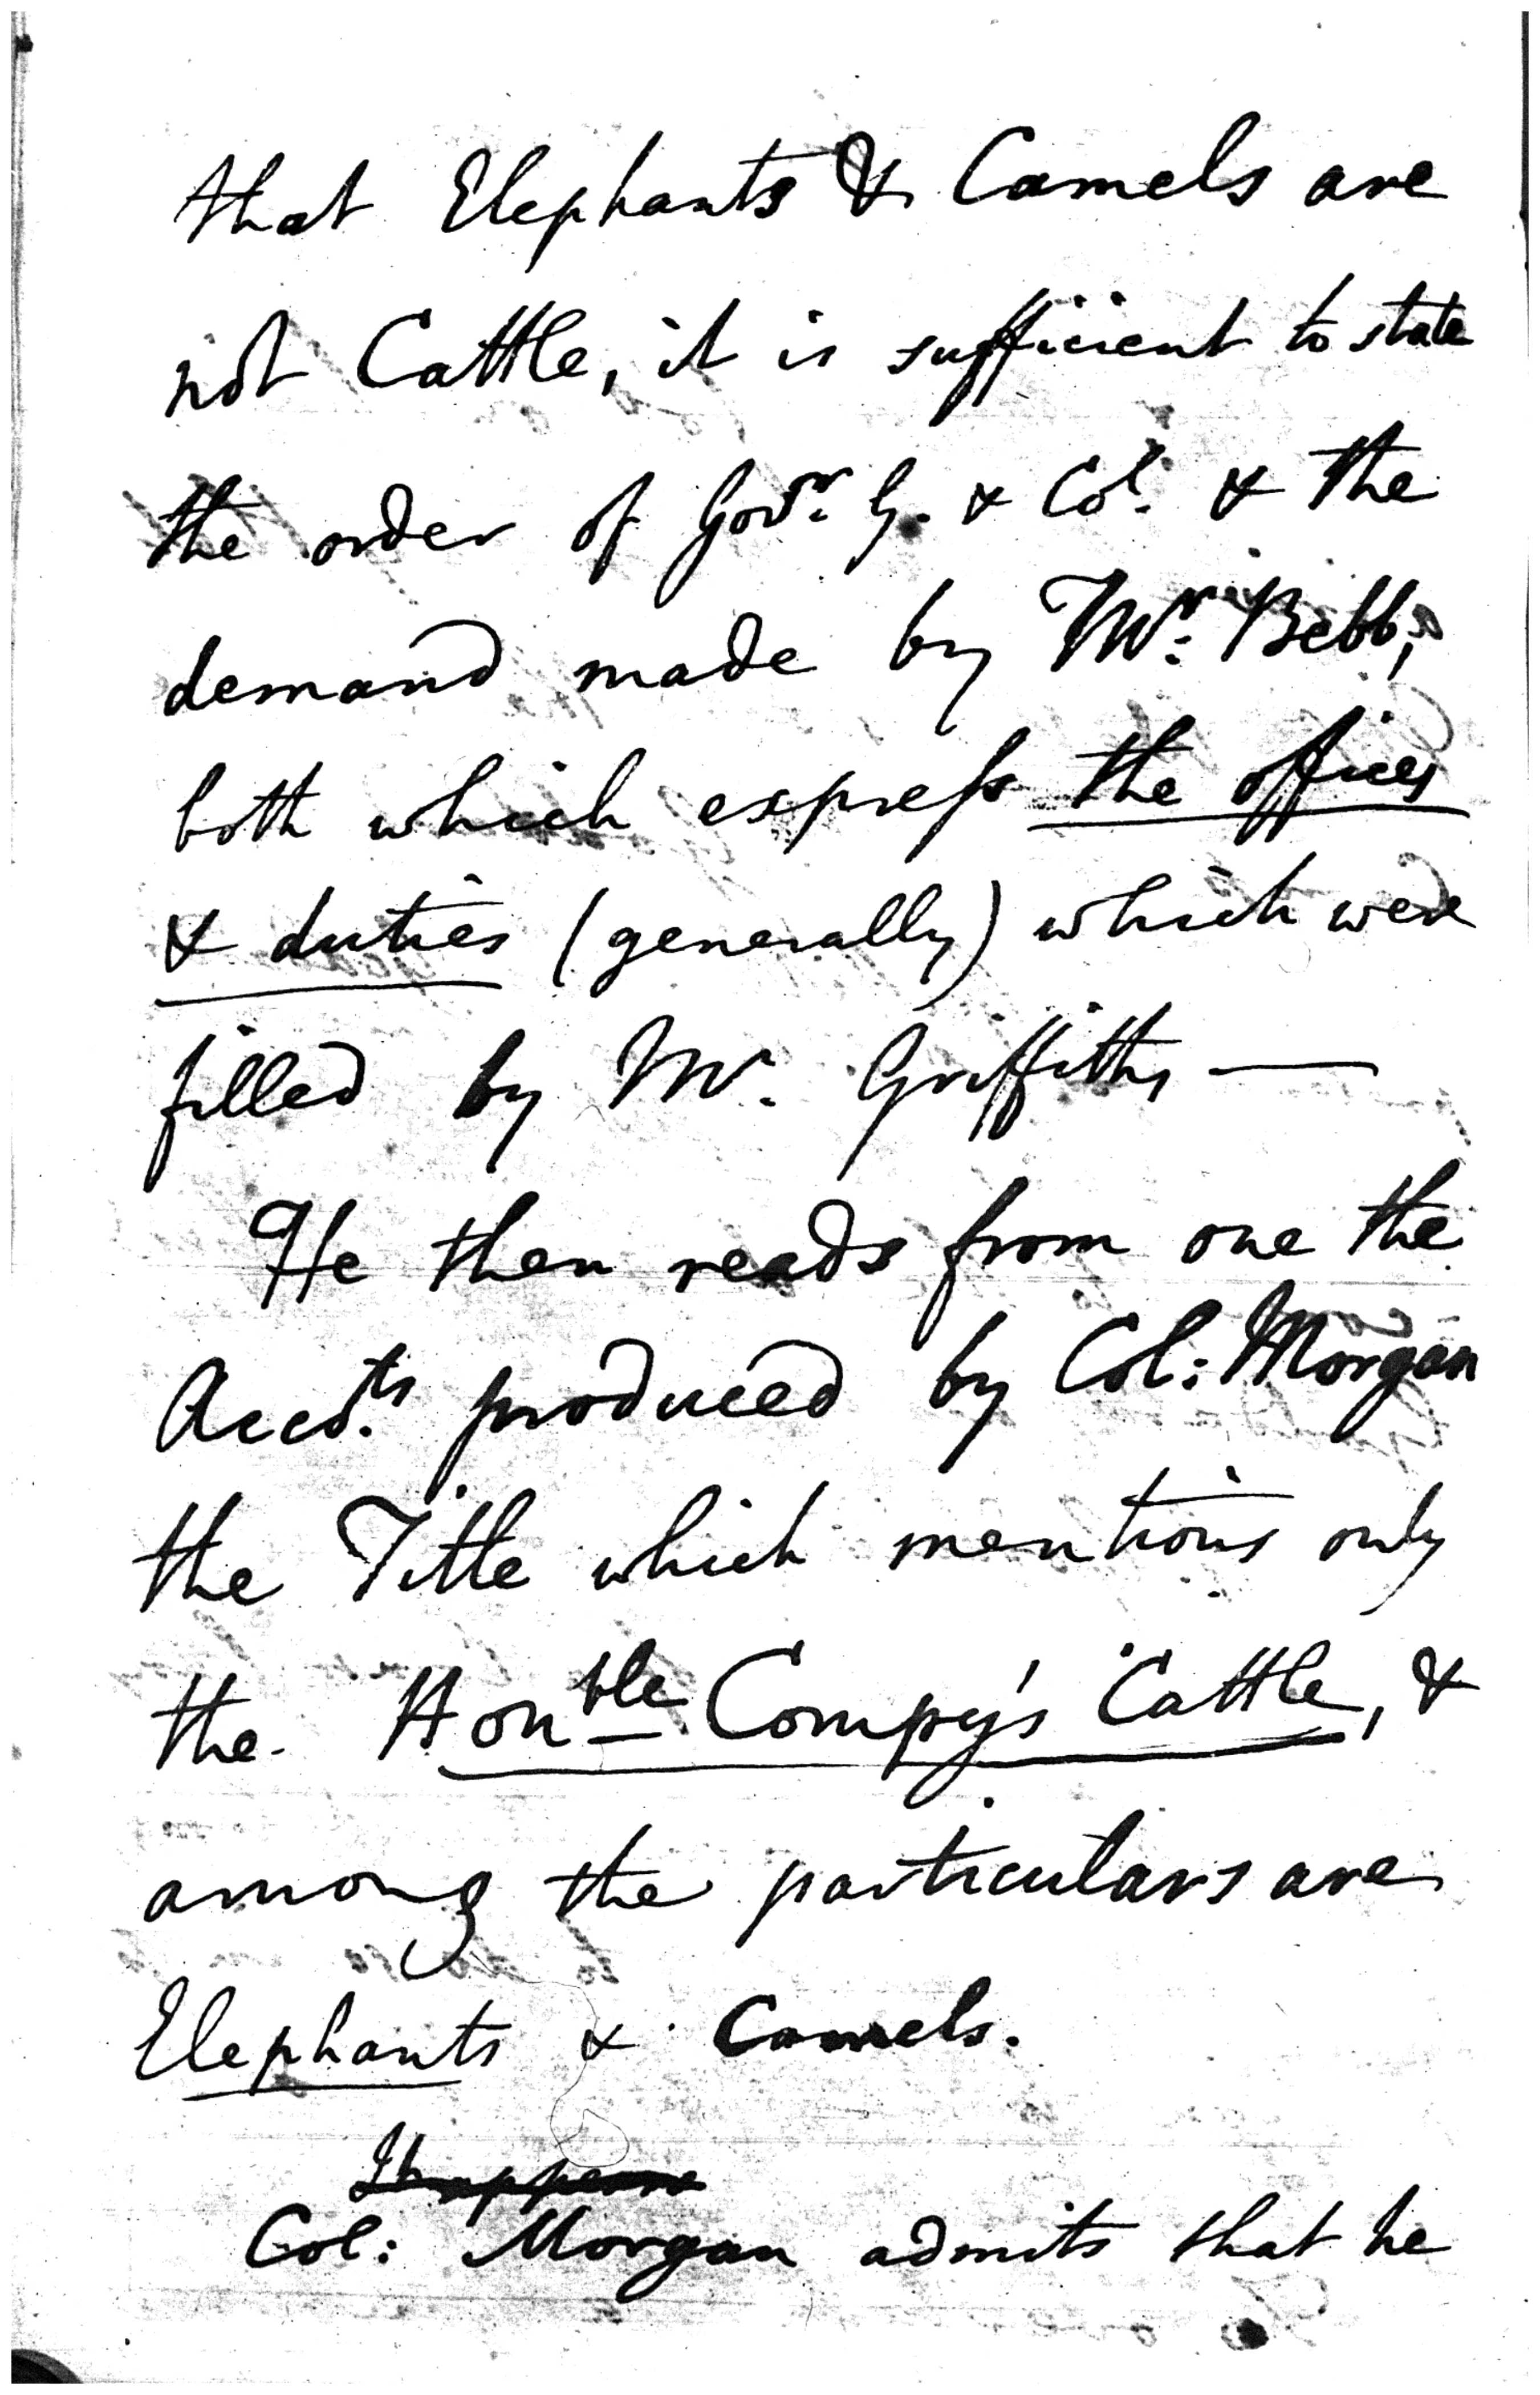 that Elephants & Camels are
not Cattle, it is sufficient to state
the order of Govr. G. & Col. & the
demand made by Mr. Bebb,
both which express the offices
& duties (generally) which were
filled by Mr. Griffiths —
He then reads from one the
Accots. produced by Col: Morgan
the Title which mentions only
the Honble Compy's Cattle, &
among the particulars are
Elephants & Camels.
Col: Morgan admits that he